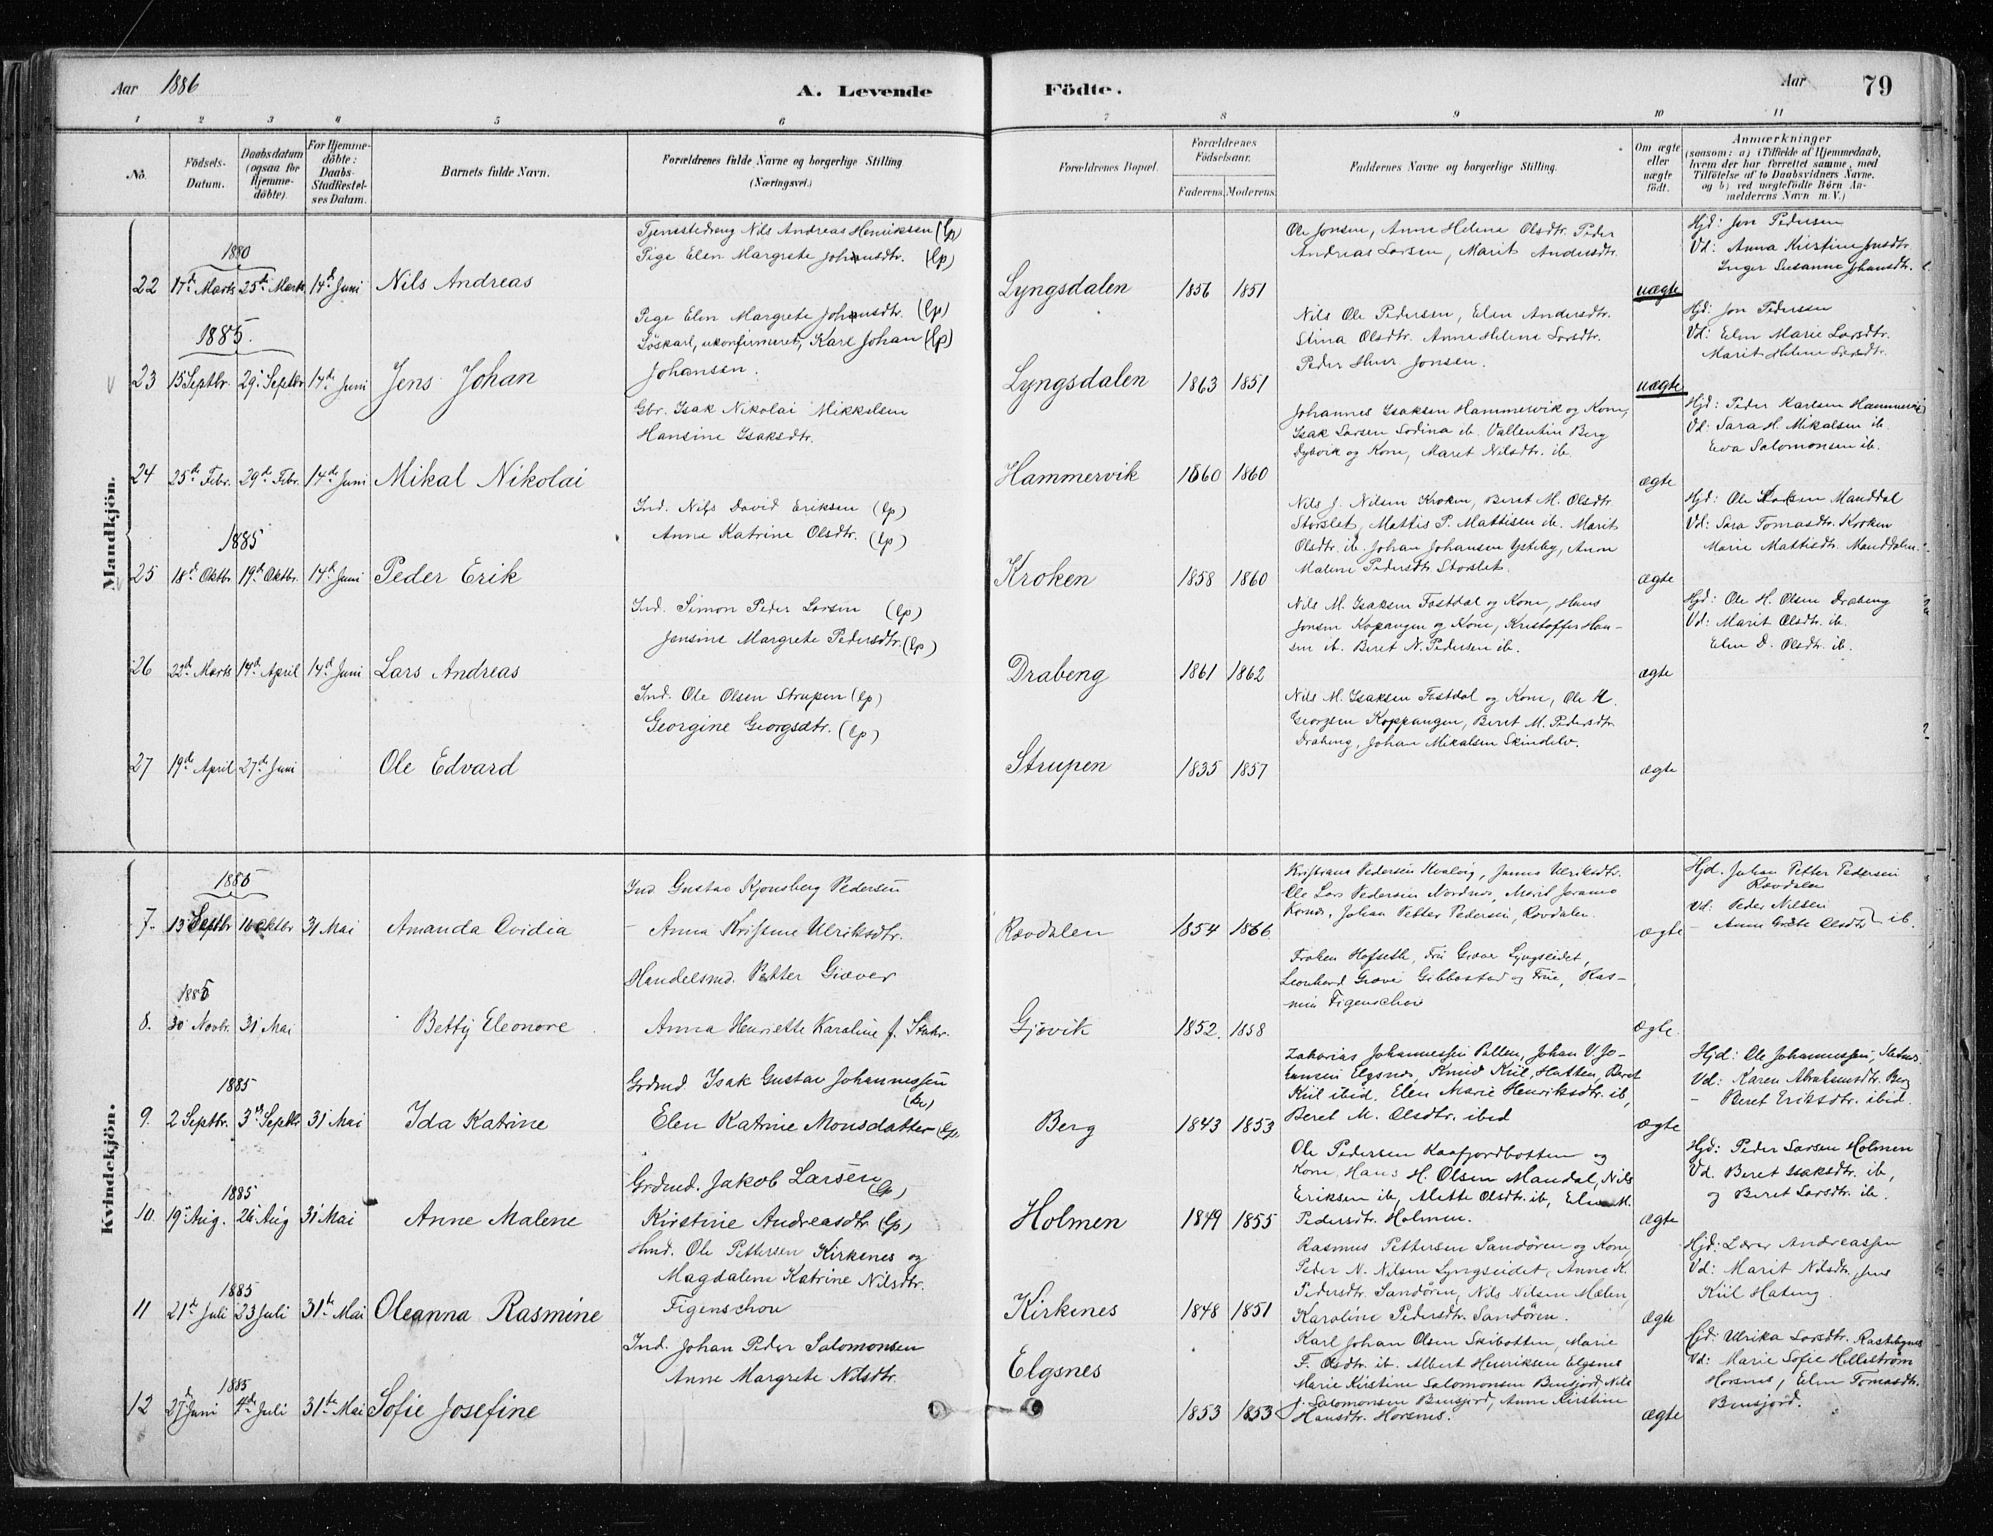 Aar 1886
A. Levende
Födte.
Aar
79
1 2 3 4 5 6 7 8 9 10 11
No.
Födsels-
Datum.
Daabsdatum
(ogsaa for
Hjemme-
döbte).
For Hjemme-
döbte:
Daabs-
Stadfæstel-
ses Datum.
Barnets fulde Navn.
Forældrenes fulde Navne og borgerlige Stilling
(Næringsvei.)
Forældrenes Bopæl.
Forældrenes
Födselsaar.
Faderens. Moderens.
Faddernes Navne og borgerlige Stilling.
Om ægte
eller
uægte
födt.
Anmærkninger
(saasom: a) i Tilfælde af Hjemmedaab,
hvem der har forrettet samme, med
Tilföielse af to Daabsvidners Navne.
og b) ved uægtefödte Börn An-
melderens Navn m. V.)
Mandkjön.
1880
22 17de Marts 25de Marts 14de Juni Nils Andreas
Tjenestedreng Nils Andreas Henriksen (Lp)
Pige Elen Margrete Johnsdtr. (Lp)
Lyngsdalen 1856 1851
Ole Jonsen, Anne Helene Olsdtr. Peder
Andreas Larsen, Marit Andersdtr.
uægte
Hjd: Jon Pedersen
Vd: Anna Kirstine Jonsdtr.
Inger Susanne Johansdtr.
1885.
23 15 Septbr. 29de Septbr 14de Juni Jens Johan
Pige Elen Margrete Johnsdtr. (Lp)
Löskarl, ukonfirmeret, Karl Johan (Lp)
Johansen.
Lyngsdalen 1863 1851
Nils Ole Pedersen, Elen Andersdtr.
Stina Olsdtr. Anne Helene Larsdtr.
Peder Henr Jonsen.
uægte
Hjd: Jon Pedersen
Vd: Elen Marie Larsdtr.
Marit Helene Larsdtr.
24 25de Febr. 29de Febr. 14de Juni Mikal Nikolai
Gbr. Isak Nikolai Mikkelsen
Hansine Isaksdtr.
Hammervik 1860 1860
Johannes Isaksen Hammervik og Kone,
Isak Larsen Sodina ib. Vallentin Berg
Dybvik og Kone, Maret Nilsdtr. ib.
ægte
Hjd: Peder Karlsen Hammervik
Vd: Sara H. Mikalsen ib.
Eva Salomonsen ib.
1885
25 18de Oktbr 19de Oktbr. 14de Juni Peder Erik
Ind. Nils David Eriksen (Lp)
Anne Katrine Olsdtr. (Lp)
Kroken 1858 1860
Nils J. Nilsen Kroken, Beret M. Olsdtr.
Storslet, Mattis P. Mattisen ib. Marit
Olsdtr. ib. Johan Johansen Ysteby, Anne
Malene Pedersdtr. Storslet.
ægte
Hjd: Ole Larsen Manddal
Vd: Sara Tomasdtr. Kroken
Marie Mattisdtr. Manddalen.
26 22de Marts 14de April 14de Juni Lars Andreas
Ind. Simon Peder Larsen (Lp)
Jensine Margrete Pedersdtr. (Lp)
Drabeng 1861 1862
Nils M. Isaksen Fastdal og Kone, Hans
Jonsen Kopangen og Kone, Kristoffer Han-
sen ib. Beret N. Pedersen ib.
ægte
Hjd: Ole H. Olsen Drabeng
Vd: Marit Olsdtr. ib.
Elen D. Olsdtr. ib.
27 19de April 27de Juni Ole Edvard
Ind. Ole Olsen Strupen (Lp)
Georgine Georgsdtr. (Lp)
Strupen 1835 1857
Nils M. Isaksen Fastdal og Kone, Ole A.
Georgsen Koppangen, Beret M. Pedersdtr.
Drabeng, Johan Mikalsen Skindelv.
ægte
Kvindekjön.
1885
7. 13 Septbr 16 Oktbr 31 Mai Amanda Ovidia
Ind Gustav Kjonsberg Pedersen
Anna Kristine Ulriksdtr.
Rovdalen 1854 1866
Kristiana Pedersen Kvalvig, Janna Ulriksdtr.
Ole Lars Pedersen Nordnes, Marit
Johan Petter Pedersen, Rovdalen.
ægte
Hjd. Johan Petter Pedersen
Rovdalen
Vd: Peder Nilsen
- Anne Grete Olsdtr } ib.
1885
8. 30 Novbr. 31 Mai Betty Eleonore
Handelsmd. Petter Giæver
Anna Henriette Karoline f. Stahr.
Gjövik 1852. 1858
Fröken Hofseth, Fru Giæver Lyngseidet,
Leonhard Gibbostad og Frue, Ras-
mus Figenschou
ægte.
1885
9. 2 Septbr. 3die Septbr 31 Mai Ida Katrine
Grdmd Isak Gustav Johannessen
(Lp)
Elen Katrine Monsdatter (Lp)
Berg 1843 1853
Zakarias Johannessen Pollen, Johan V. Jo-
Elgsnes, Knud Kiil, Hatten, Beret
Kiil ibid. Elen Marie Henriksdtr. ib,
Beret M. Olsdtr. ibid
ægte
Hjd: Ole Johannessen,
Vd: Karen Abrahamsdtr. Berg
- Beret Eriksdtr. ibid.
1885
10. 19de Aug. 26de Aug 31 Mai Anne Malene
Grdmd. Jakob Larsen (Lp)
Kirstine Andreasdtr. (Lp)
Holmen 1849 1855
Ole Pedersen Kaafjordbotten og
Kone. Hans H. Olsen Mandal, Nils
Eriksen ib, Alette Olsdtr. ib, Elen M.
Pedersdtr. Holmen.
ægte
Hjd: Peder Larsen Holmen
Vd. Beret Isaksdtr. ib,
og Beret Larsdtr. ib.
1885
11 21de Juli 23 Juli 31te Mai Oleanna Rasmine
Hmd. Ole Pettersen Kirkenes og
Magdalene Katrine Nilsdtr.
Figenschou
Kirkenes 1848 1851
Rasmus Pettersen Sandören og Kone,
Peder N. Nilsen Lyngseidet, Anne K.
Pedersdtr. Sandören, Nils Nilsen Mælen,
Karoline Pedersdtr. Sandören.
ægte
Hjd: Lærer Andreassen
Vd: Marit Nilsdtr, Jens
Kiil Hateng.
1885
12 27de Juni 4de Juli 31te Mai Sofie Josefine
Ind. Johan Peder Salomonsen
Anne Margrete Nilsdtr.
Elgsnes
1853 1853
Karl Johan Olsen Skibotten, Marie
F. Olsdtr. ib. Albert Henriksen Elgsnes
Marie Kirstine Salomonsen Bensjord, Nils
J. Salomonsen Bensjord, Anne Kirstine
Hansdtr. Horsnes.
ægte
Hjd: Ulrika Larsdtr. Rastebynes
Vd: Marie Sofie Hellström
Horsnes, Elen Tomasdtr.
Bensjord.